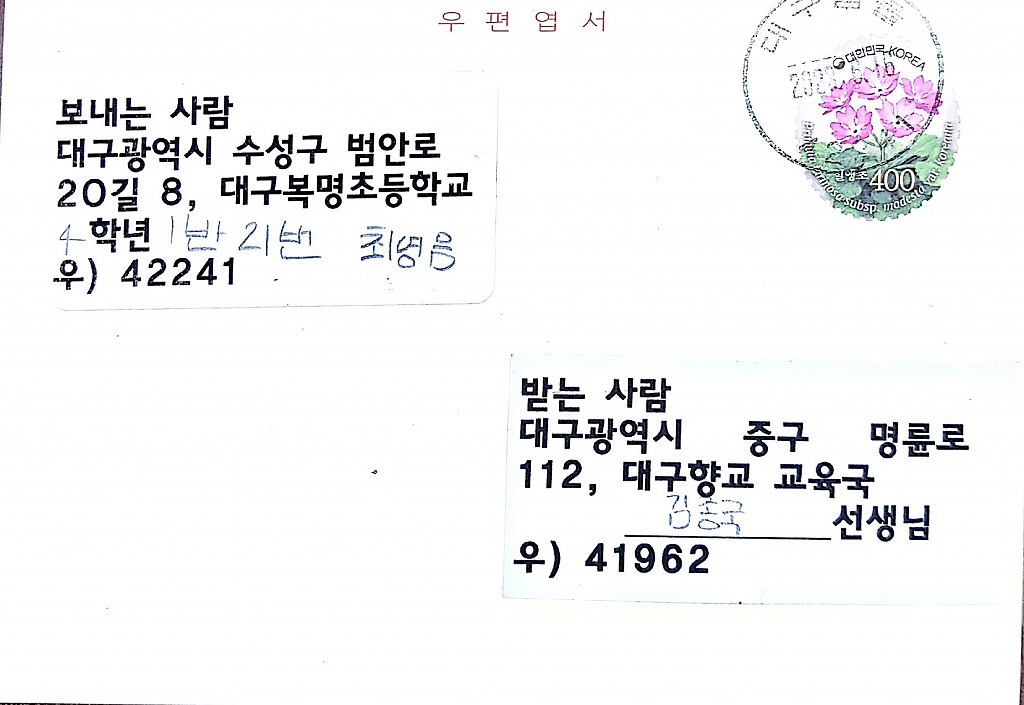 우편엽서
대한민국 KOREA
보내는 사람
대구광역시 수성구 범안로
20길 8, 대구복명초등학교
4학년 1반 21번 최영음
우) 42241
앵초 400
받는 사람
대구광역시 중구 명륜로
112, 대구향교 교육국
김종국 선생님
우) 41962